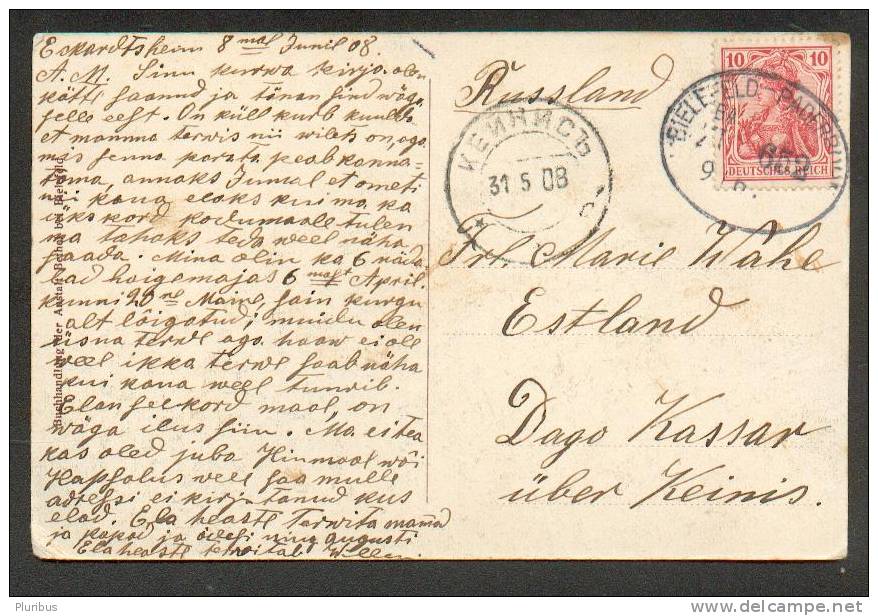 Eckardtsheim 8mal Junil 08.
A. M. Sinu kurwa kirja olen
kätte saanud ja tänan sind wäga
selle eest. On küll kurb kuulda
et mamma terwis nii wilets on, aga
mis senna parata peab kanna-
tama, annaks Jumal et ometi
nii kaua elaks kui ma ka
ükskord kodumaale tulen
ma tahaks teda weel näha
saada. Mina olin ka 6 näda
lad haigemajas 6mast April.
kunni 20ne Maine, sain kurgu
alt lõigatud; muidu olen
üsna terwe aga haaw ei ole
weel ikka terwe saab näha
kui kaua weel tuurib.
Elan seekord maal, on
wäga ilus siin. Ma ei tea
kas oled juba Hinmaal wõi
Hapsalus weel saa mulle
adressi ei kirjutanud kus
elad. Ela heaste terwita mamad
ja papad ja ning Augusti
Ela heaste terwitab Willem.
Buchhandlung der Anstalt Bethel bei Bielefeld
Russland
КЕЙНИСЪ
31 5 08
10 10
DEUTSCHES REICH
BIELEFELD - PADERBORN
659
Frl. Marie Wähe
Estland
Dago Kassar
über Keinis.
Pluribus
www.delcampe.net